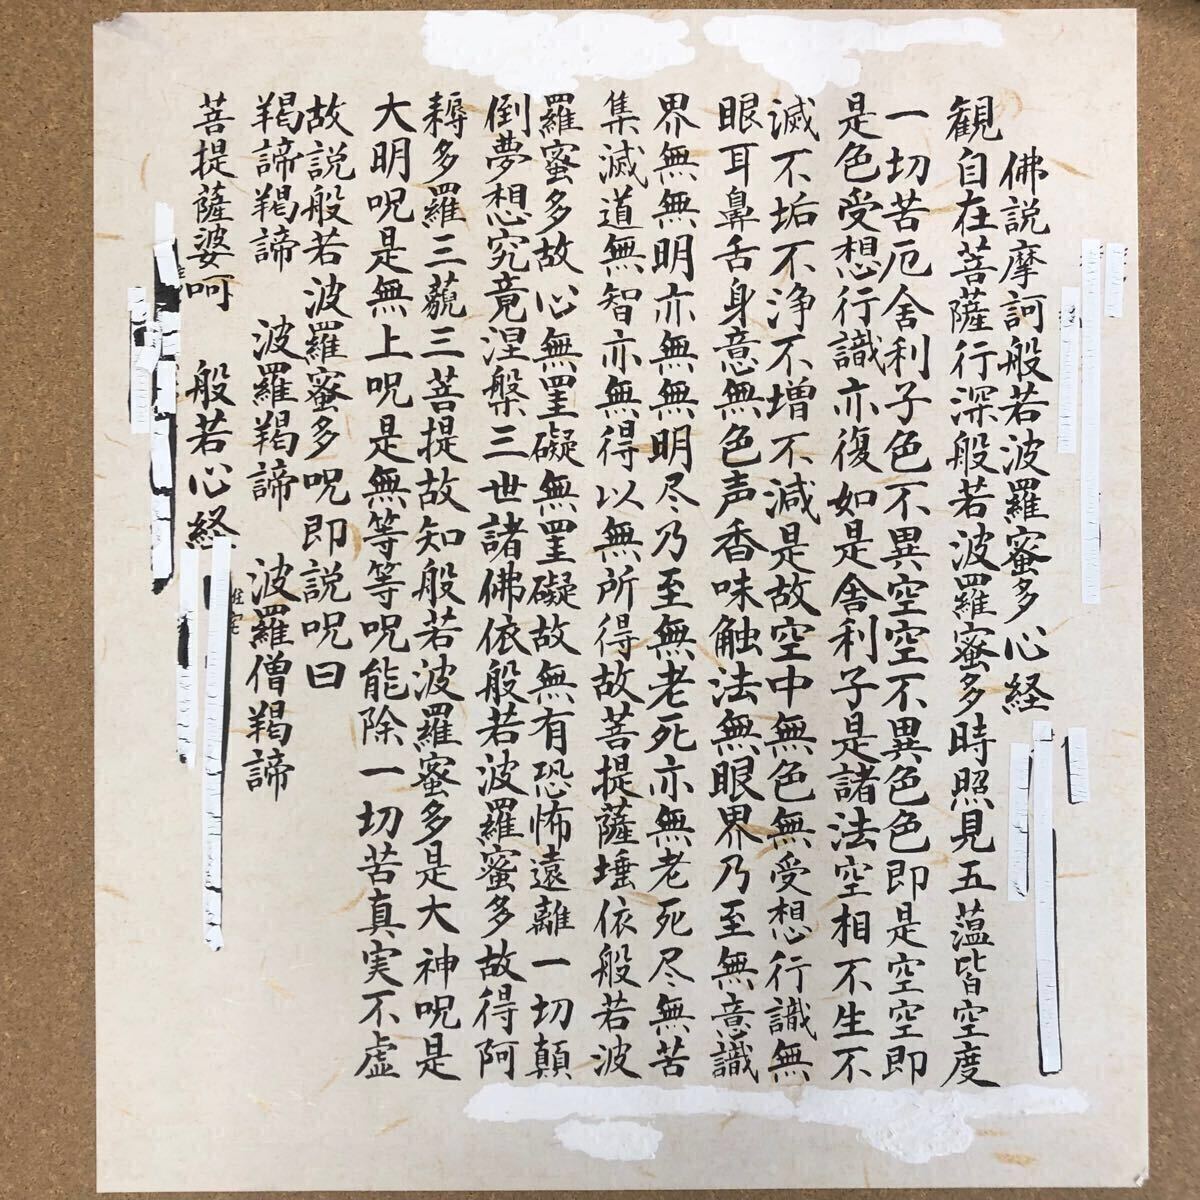 佛説摩訶般若波羅蜜多心経
観自在菩薩行深般若波羅蜜多時照見五薀皆空度
一切苦厄舍利子色不異空空不異色色即是空空即
是色受想行識亦復如是舎利子是諸法空相不生不
滅不垢不浄不増不減是故空中無色無受想行識無
眼耳鼻舌身意無色声香味触法無眼界乃至無意識
界無無明亦無無明尽乃至無老死亦無老死尽無苦
集滅道無智亦無得以無所得故菩提薩埵依般若波
羅蜜多故心無罣礙無罣礙故無有恐怖遠離一切顛
倒夢想究竟涅槃三世諸佛依般若波羅蜜多故得阿
耨多羅三藐三菩提故知般若波羅蜜多是大神呪是
大明呪是無上呪是無等等呪能除一切苦真実不虚
故説般若波羅蜜多呪即説呪曰
羯諦羯諦 波羅羯諦 波羅僧羯諦
菩提薩婆呵 般若心経